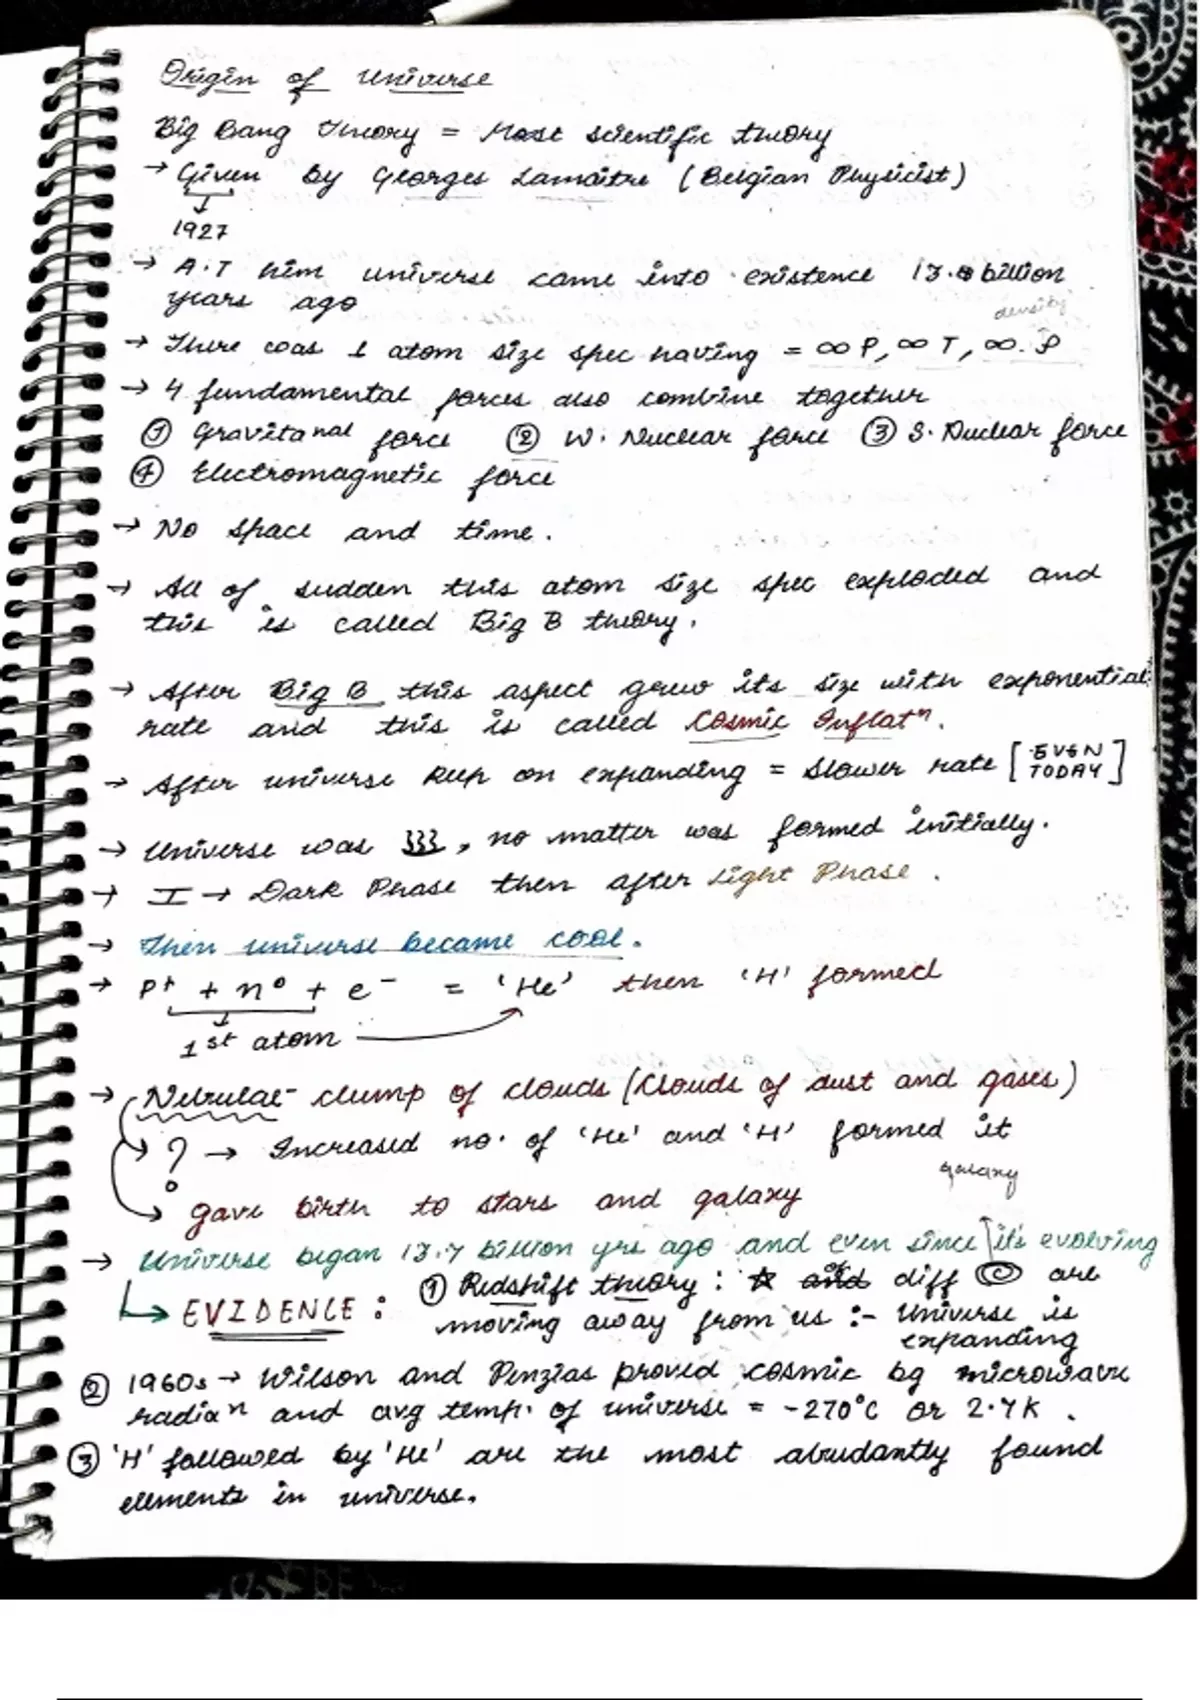 Origin of Universe
Big Bang Theory = Most scientific theory
→ Given by Georges Lamaitre (Belgian Physicist)
1927
→ A.T him universe came into existence 13.8 billion
years ago
density
→ There was 1 atom size spec having = ∞ P, ∞ T, ∞. ρ
→ 4 fundamental forces also combine together
① Gravitanal force ② W. Nuclear force ③ S. Nuclear force
④ Electromagnetic force
→ No space and time.
→ All of sudden this atom size spec exploded and
this is called Big B theory.
→ After Big B this aspect grew its size with exponential
rate and this is called Cosmic Inflatⁿ.
→ After universe keep on expanding = slower rate [EVEN TODAY]
→ Universe was , no matter was formed initially.
→ I → Dark Phase then after Light Phase.
→ Then universe became cool.
→ P⁺ + n⁰ + e⁻ = 'He' then 'H' formed
1st atom
→ Nebulae - clump of clouds (Clouds of dust and gases)
? → Increased no. of 'He' and 'H' formed it
galaxy
gave birth to stars and galaxy
→ Universe began 13.7 billion yrs ago and even since it's evolving
EVIDENCE : ① Redshift theory : ☆ of diff are
moving away from us :- Universe is
expanding
② 1960s → Wilson and Penzias proved cosmic bg microwave
radiaⁿ and avg temp. of universe = -270°C or 2.7K.
③ 'H' followed by 'He' are the most abudantly found
elements in universe.